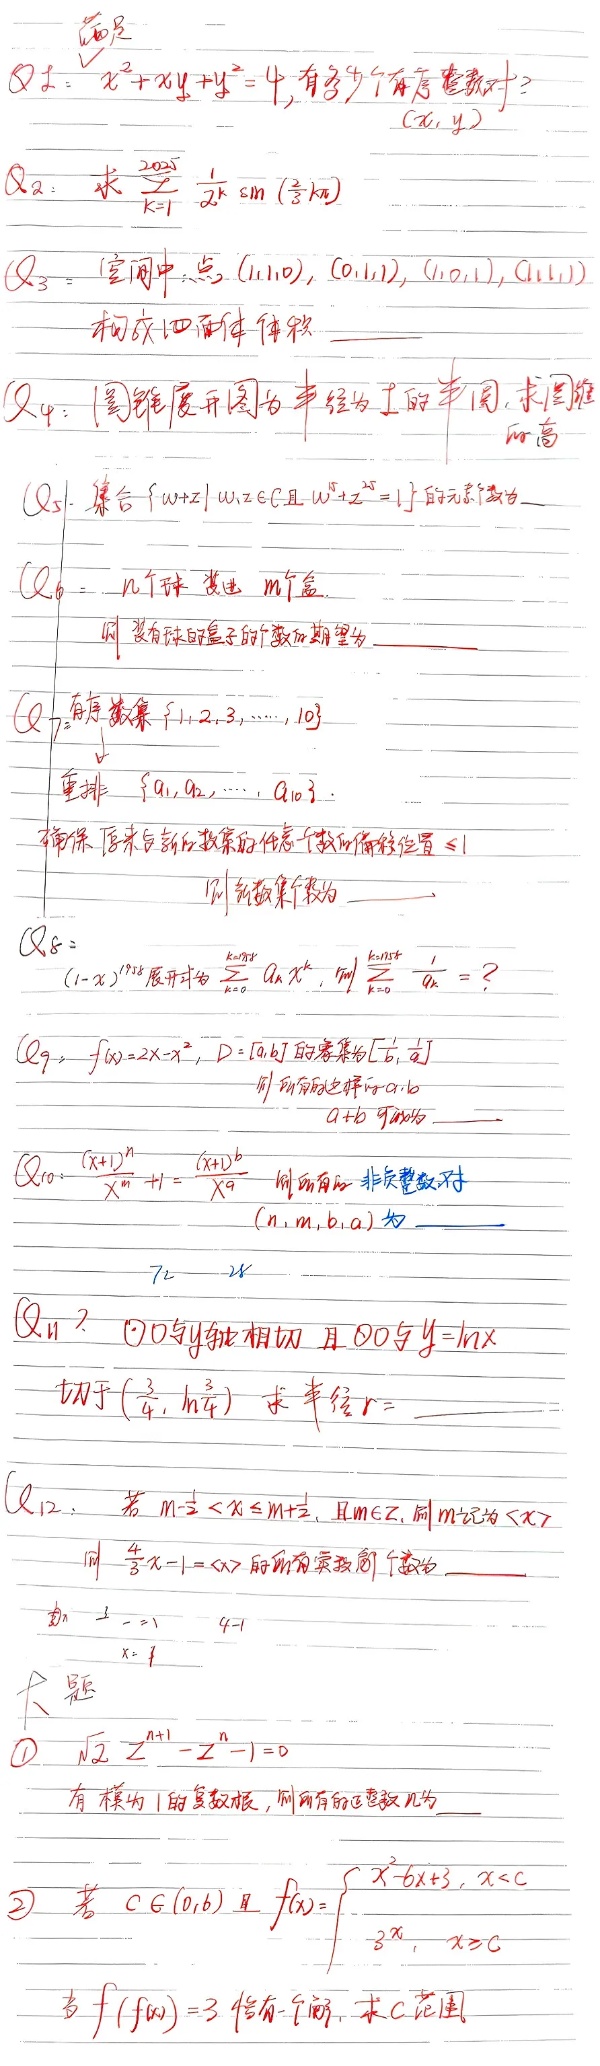 满足
Q1: x²+xy+y²=4, 有多少个有序整数对?
(x, y)
Q2: 求 \sum_{k=1}^{2025} \frac{1}{2^k} sin (\frac{2}{3}kπ)
Q3: 空间中点 (1,1,0), (0,1,1), (1,0,1), (1,1,1)
构成四面体体积 ____
Q4: 圆锥展开图为半径为1的半圆, 求圆锥
的高
Q5. 集合 {w+z | w,z∈C且 w^{15}+z^{25}=1} 的元素个数为__
Q6: n个球 装进 m个盒.
则 装有球的盒子的个数的期望为 ____
Q7: 有序数集 {1, 2, 3, ……, 10}
↓
重排 {a₁, a₂, ……, a₁₀}.
确保 原来与新的数集的任意个数的偏移位置 ≤1
则新数集个数为 ____
Q8:
(1-x)^{1958}展开式为 \sum_{k=0}^{k=1958} a_k x^k, 则 \sum_{k=0}^{k=1958} \frac{1}{a_k} = ?
Q9: f(x)=2x-x², D=[a,b] 的象集为 [\frac{1}{b}, \frac{1}{a}]
则 所有的这样的a,b
a+b 可以为 ____
Q10: \frac{(x+1)^n}{x^m} +1 = \frac{(x+1)^b}{x^a} 则所有的 非负整数对
(n, m, b, a) 为 ____
72 28
Q11: ⊙O与y轴相切 且⊙O与 y=lnx
切于 (\frac{3}{4}, ln\frac{3}{4}) 求 半径 r= ____
Q12: 若 m-\frac{1}{2} < x ≤ m+\frac{1}{2}, 且m∈Z, 则 m记为 <x>
则 \frac{4}{3}x-1=<x> 的所有实数解个数为 ____
4-1
大题
① √2 z^{n+1} - z^n - 1 = 0
有 模为 1 的复数根, 则所有的正整数n为 ____
② 若 c∈(0,6) 且 f(x)= { x²-6x+3, x<c
3^x, x≥c
当 f(f(x))=3 恰有一个解, 求 c 范围